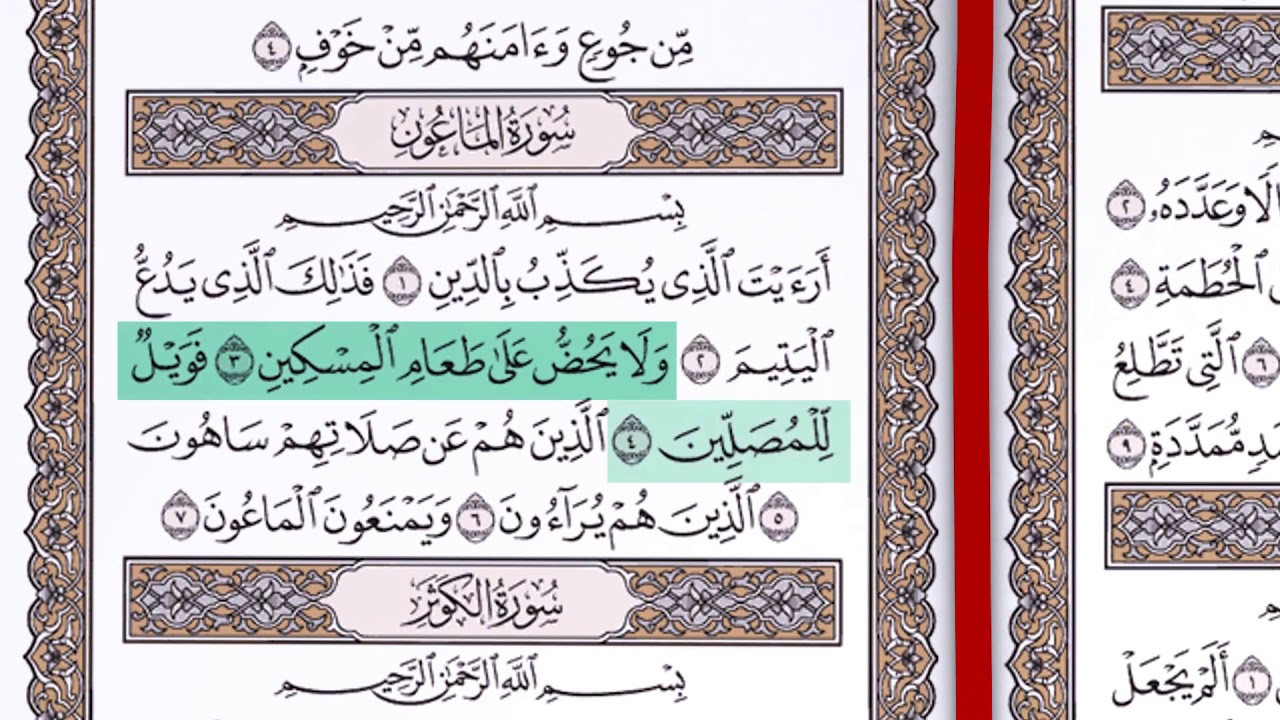 مِّن جُوعٍ وَءَامَنَهُم مِّنْ خَوْفٍ ٤
سُورَةُ المَاعُونِ
بِسْمِ ٱللَّهِ ٱلرَّحْمَٰنِ ٱلرَّحِيمِ
أَرَءَيْتَ ٱلَّذِى يُكَذِّبُ بِٱلدِّينِ ١ فَذَٰلِكَ ٱلَّذِى يَدُعُّ
ٱلْيَتِيمَ ٢ وَلَا يَحُضُّ عَلَىٰ طَعَامِ ٱلْمِسْكِينِ ٣ فَوَيْلٌ
لِّلْمُصَلِّينَ ٤ ٱلَّذِينَ هُمْ عَن صَلَاتِهِمْ سَاهُونَ
٥ ٱلَّذِينَ هُمْ يُرَآءُونَ ٦ وَيَمْنَعُونَ ٱلْمَاعُونَ ٧
سُورَةُ الكَوْثَرِ
بِسْمِ ٱللَّهِ ٱلرَّحْمَٰنِ ٱلرَّحِيمِ
وَعَدَّدَهُۥ ٢
ٱلْحُطَمَةِ ٤
٦ ٱلَّتِى تَطَّلِعُ
مُّمَدَّدَةٍۭ ٩
١ أَلَمْ يَجْعَلْ